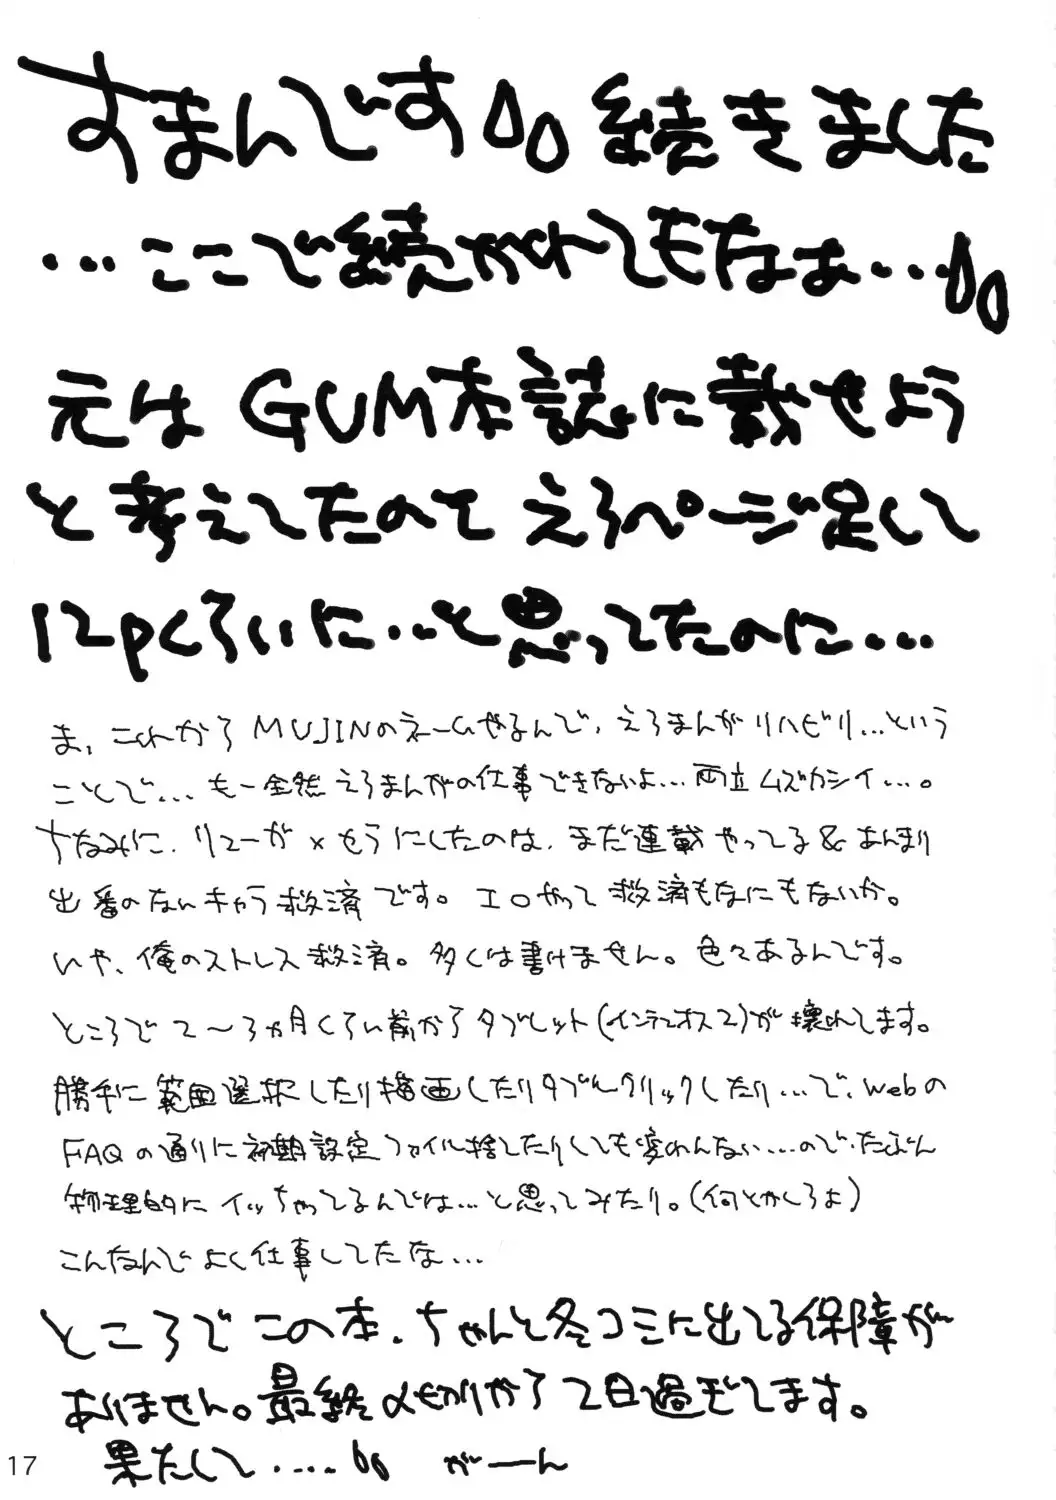 すまんです 続きました
…ここで続かれてもなぁ…
元はGUM本誌に載せよう
と考えてたのでえろページ足して
12pくらいに…と思ってたのに…
ま、これからMUJINのネームやるんで、えろまんがリハビリ…という
ことで…もー全然えろまんがの仕事できないよ…両立ムズカシイ…。
ちなみに、リューガ×せらにしたのは、まだ連載やってる&あんまり
出番のないキャラ救済です。エロやって救済もなにもないか。
いや、俺のストレス救済。多くは書けません。色々あるんです。
ところで2〜3ヵ月くらい前からタブレット(インテュオス2)が壊れてます。
勝手に範囲選択したり描画したりダブルクリックしたり…で、webの
FAQの通りに初期設定ファイル捨てたりしても変わんない…ので、たぶん
物理的にイッちゃってるんでは…と思ってみたり。(何とかしろよ)
こんなんでよく仕事してたな…
ところでこの本、ちゃんと冬コミに出てる保障が
ありません。最終〆切から2日過ぎてます。
果たして…… がーーん
17